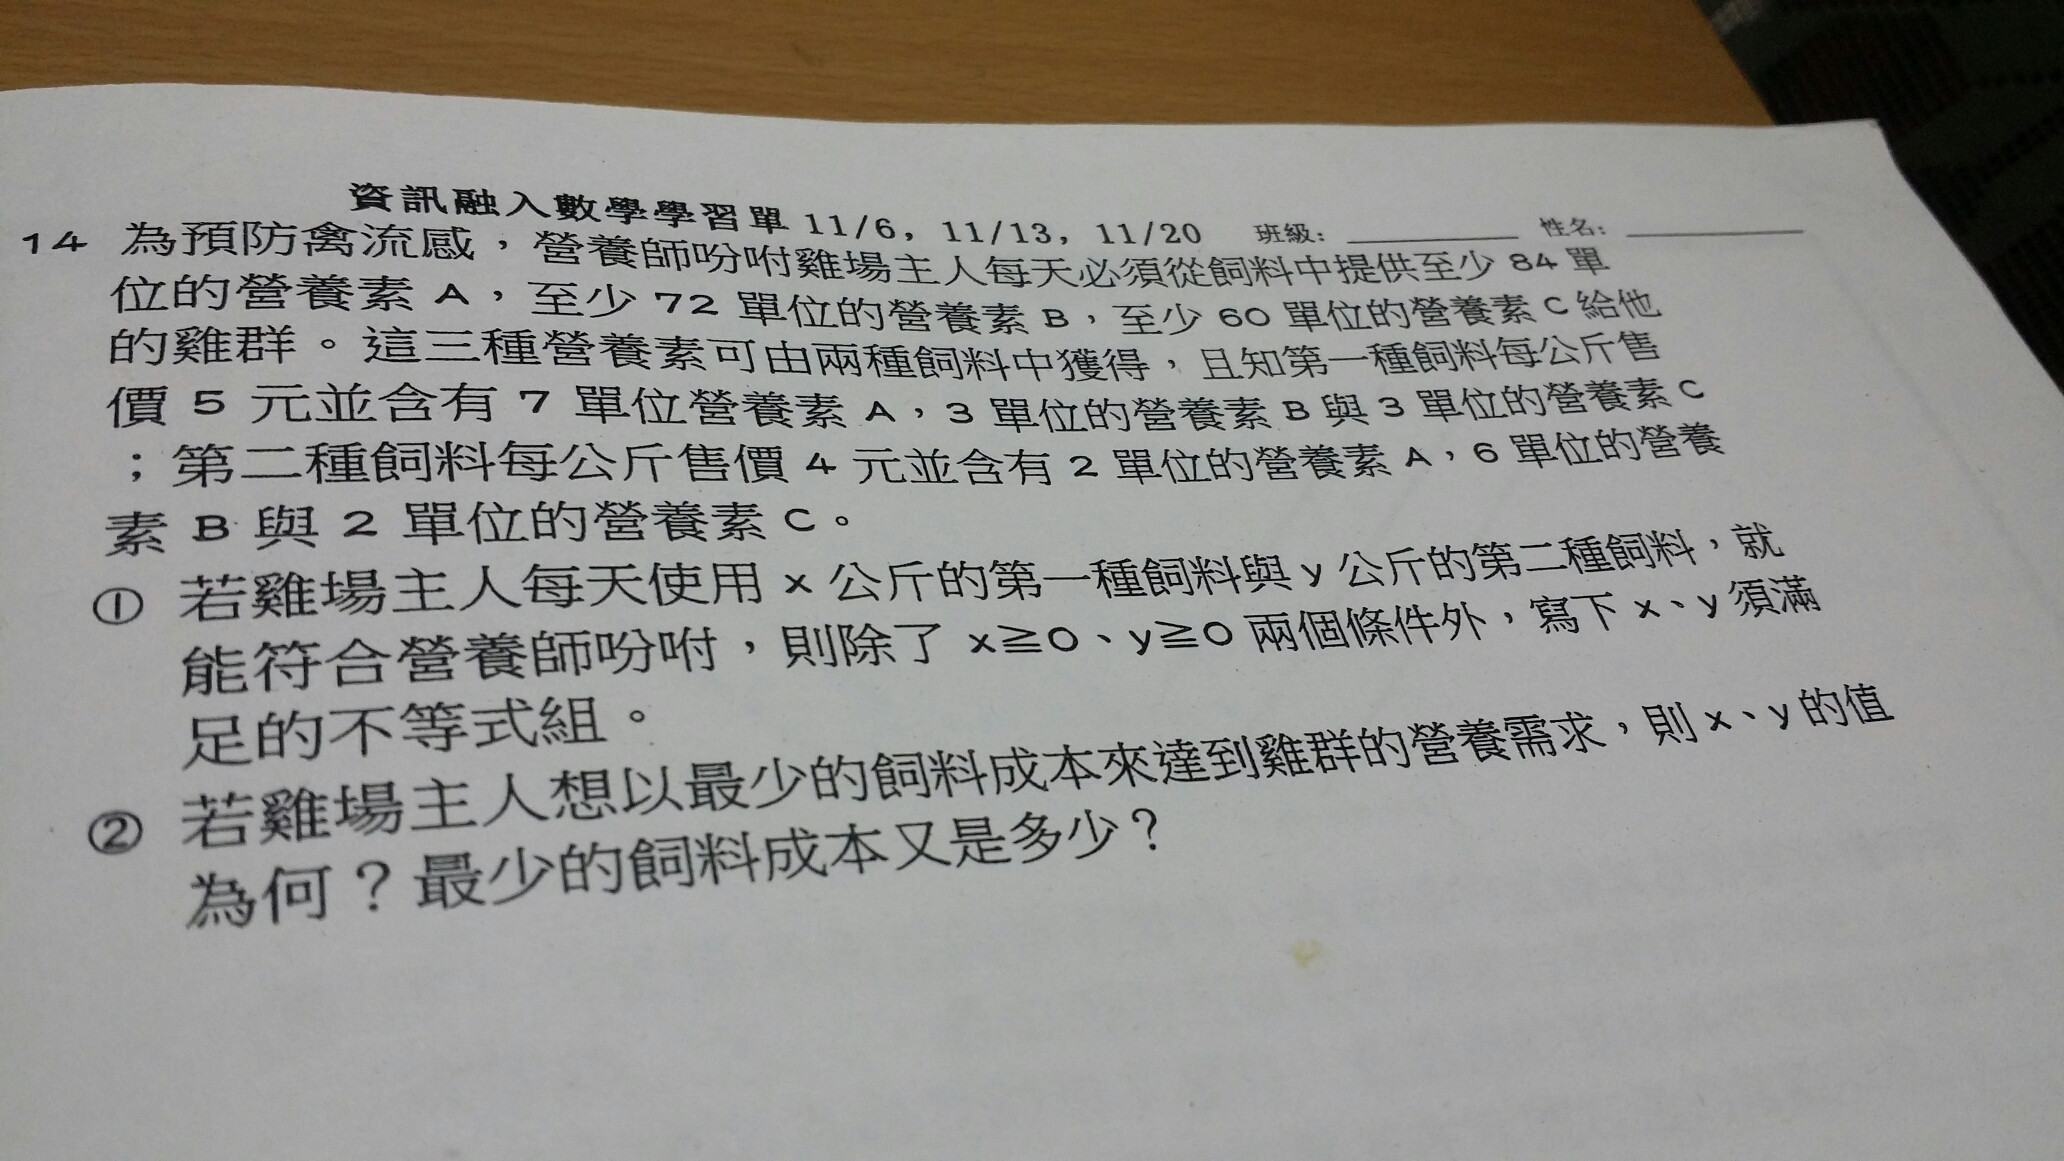 資訊融入數學學習單 11/6, 11/13, 11/20 班級: ________ 姓名: ________
14 為預防禽流感,營養師吩咐雞場主人每天必須從飼料中提供至少 84 單
位的營養素 A,至少 72 單位的營養素 B,至少 60 單位的營養素 C 給他
的雞群。這三種營養素可由兩種飼料中獲得,且知第一種飼料每公斤售
價 5 元並含有 7 單位營養素 A,3 單位的營養素 B 與 3 單位的營養素 C
;第二種飼料每公斤售價 4 元並含有 2 單位的營養素 A,6 單位的營養
素 B 與 2 單位的營養素 C。
① 若雞場主人每天使用 x 公斤的第一種飼料與 y 公斤的第二種飼料,就
能符合營養師吩咐,則除了 x≧0、y≧0 兩個條件外,寫下 x、y 須滿
足的不等式組。
② 若雞場主人想以最少的飼料成本來達到雞群的營養需求,則 x、y 的值
為何?最少的飼料成本又是多少?